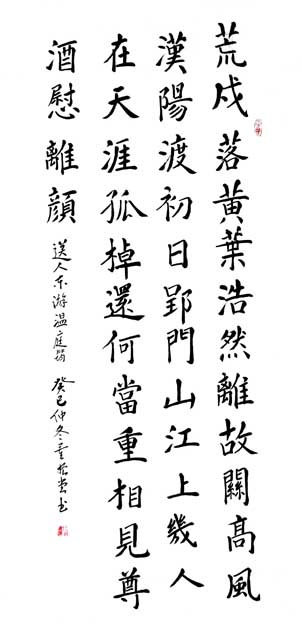 荒戍落黃葉浩然離故關高風
漢陽渡初日郢門山江上幾人
在天涯孤棹還何當重相見尊
酒慰離顏
送人东游溫庭筠 癸巳仲冬书